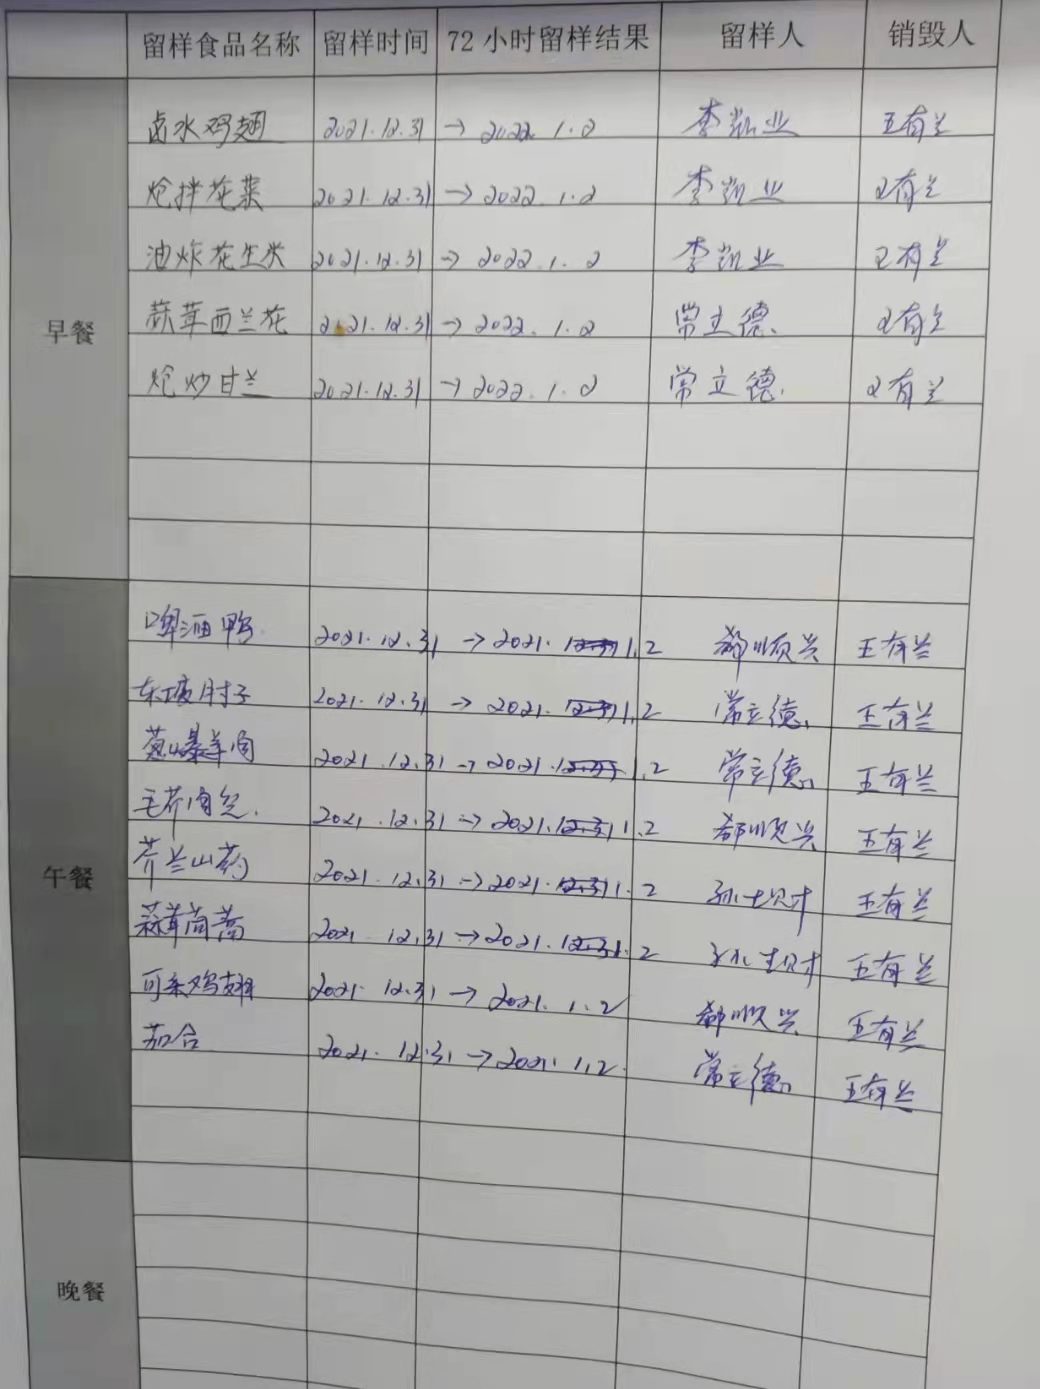 留样食品名称 留样时间 72小时留样结果 留样人 销毁人
早餐
卤水鸡翅 2021.12.31 → 2022.1.2 李凯业 王有兰
炝拌花菜 2021.12.31 → 2022.1.2 李凯业 王有兰
油炸花生米 2021.12.31 → 2022.1.2 李凯业 王有兰
蒜茸西兰花 2021.12.31 → 2022.1.2 常立德 王有兰
炝炒甘兰 2021.12.31 → 2022.1.2 常立德 王有兰
午餐
啤酒鸭 2021.12.31 → 2021.1.2 郗顺兴 王有兰
东坡肘子 2021.12.31 → 2021.1.2 常立德 王有兰
葱爆羊肉 2021.12.31 → 2021.1.2 常立德 王有兰
毛芹肉丝 2021.12.31 → 2021.1.2 郗顺兴 王有兰
芥兰山药 2021.12.31 → 2021.1.2 王有兰
蒜茸茼蒿 2021.12.31 → 2021.1.2 王有兰
可乐鸡翅 2021.12.31 → 2021.1.2 郗顺兴 王有兰
茄合 2021.12.31 → 2021.1.2 常立德 王有兰
晚餐